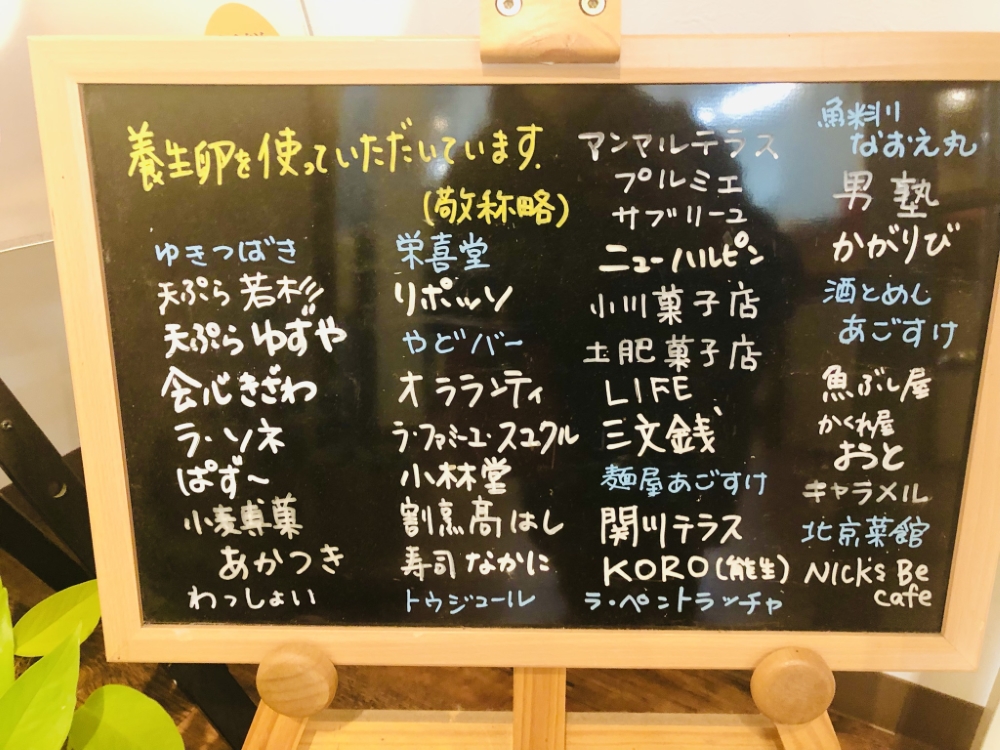 養生卵を使っていただいています.
(敬称略)
ゆきつばき
天ぷら 若杉
天ぷら ゆずや
会心きざわ
ラ・ソネ
ぱず〜
小麦専菓
あかつき
わっしょい
栄喜堂
リポッソ
やどバー
オラランティ
ラ・ファミーユ・スユクル
小林堂
割烹高はし
寿司 なかに
トウジュール
アンマルテラス
プルミエ
サブリーユ
ニューハルピン
小川菓子店
土肥菓子店
LIFE
三文銭
麺屋あごすけ
関川テラス
KORO(能生)
ラ・ペントラッチャ
魚料川
なおえ丸
男塾
かがりび
酒とめし
あごすけ
魚ぶし屋
かくれ屋
おうと
キャラメル
北京菜館
NICKs Be
cafe